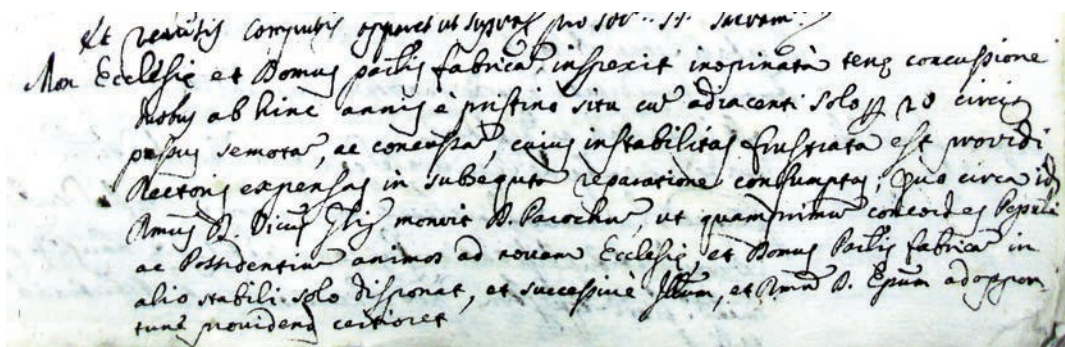 et revisis computis apparet ut supra pro
Mox Ecclesię et Domus pãlis fabricã inspexit inopinata terrę concussione
duobus abhinc annis e pristino situ cũ adiacenti solo 20 circit
passus semotã, ac concussã, cuius instabilitas frustrata est providi
Rectoris expensas in subsequta reparatione consumptas; Quo circa idẽ
Rmus D. Vicus Glis monuit D. Parochũ, ut quamprimũ concordes Populi
ac Possidentiũ animos ad novam Ecclesię, et Domus Pãlis fabricã in
alio stabili solo disponat, et successivè Illmum, et Rmum D. Epum ad oppor
tunẽ providend certioret